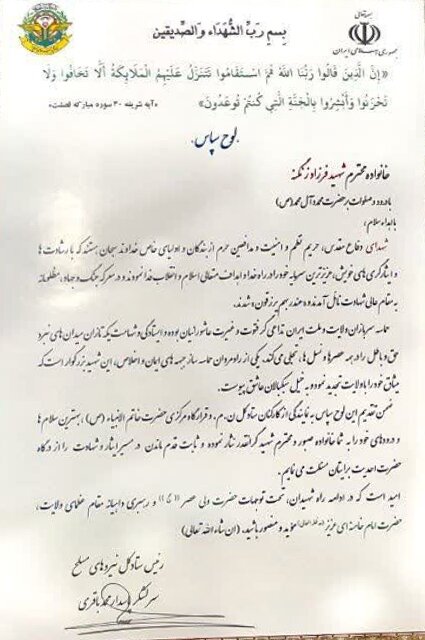 بسمه تعالی
جمهوری اسلامی ایران
بِسمِ رَبِّ الشُّهَدَاء وَالصِّدیقین
«إِنَّ الَّذِينَ قَالُوا رَبُّنَا اللَّهُ ثُمَّ اسْتَقَامُوا تَتَنَزَّلُ عَلَيْهِمُ الْمَلَائِكَةُ أَلَّا تَخَافُوا وَلَا
تَحْزَنُوا وَأَبْشِرُوا بِالْجَنَّةِ الَّتِي كُنتُمْ تُوعَدُونَ» «آیه شریفه ۳۰ سوره مبارکه فصلت»
لوح سپاس
خانواده محترم شهید فرزاد زنگنه
با درود و صلوات بر حضرت محمد و آل محمد (ص)
با اهداء سلام؛
شهدای دفاع مقدس، حریم نظم و امنیت و مدافعین حرم از بندگان و اولیای خاص خداوند سبحان هستند که با رشادت ها
و ایثارگری های خویش، عزیزترین سرمایه خود را در راه خدا و اهداف متعالی اسلام و انقلاب فدا نمودند و در معرکه جنگ و جهاد، مظلومانه
به مقام عالی شهادت نائل آمدند و عند ربهم یرزقون شدند.
حماسه سربازان ولایت و ملت ایران تداعی گر فتوت و غیرت عاشورائیان بوده و ایستادگی و شهامت یکه تازان میدان های نبرد
حق و باطل را در همه عصرها و نسل ها، تجلی می کند. یکی از رادمردان حماسه ساز جبهه های ایمان و اخلاص، این شهید بزرگوار است که
میثاق خود را با ولایت تجدید نموده و به خیل سبکبالان عاشق پیوست.
ضمن تقدیم این لوح سپاس به نمایندگی از کارکنان ستادکل ن.م. و قرارگاه مرکزی حضرت خاتم الانبیاء (ص)، بهترین سلام ها
و درودهای خود را به شما خانواده صبور و محترم شهید گرانقدر نثار نموده و ثابت قدم ماندن در مسیر ایثار و شهادت را از درگاه
حضرت احدیت برایتان مسئلت می نمایم.
امید است که در ادامه راه شهیدان، تحت توجهات حضرت ولی عصر «عج» و رهبری داهیانه مقام عظمای ولایت،
حضرت امام خامنه ای عزیز (مدظله العالی) مؤید و منصور باشید. (ان شاء الله تعالی)
رئیس ستادکل نیروهای مسلح
سرلشکر پاسدار محمد باقری